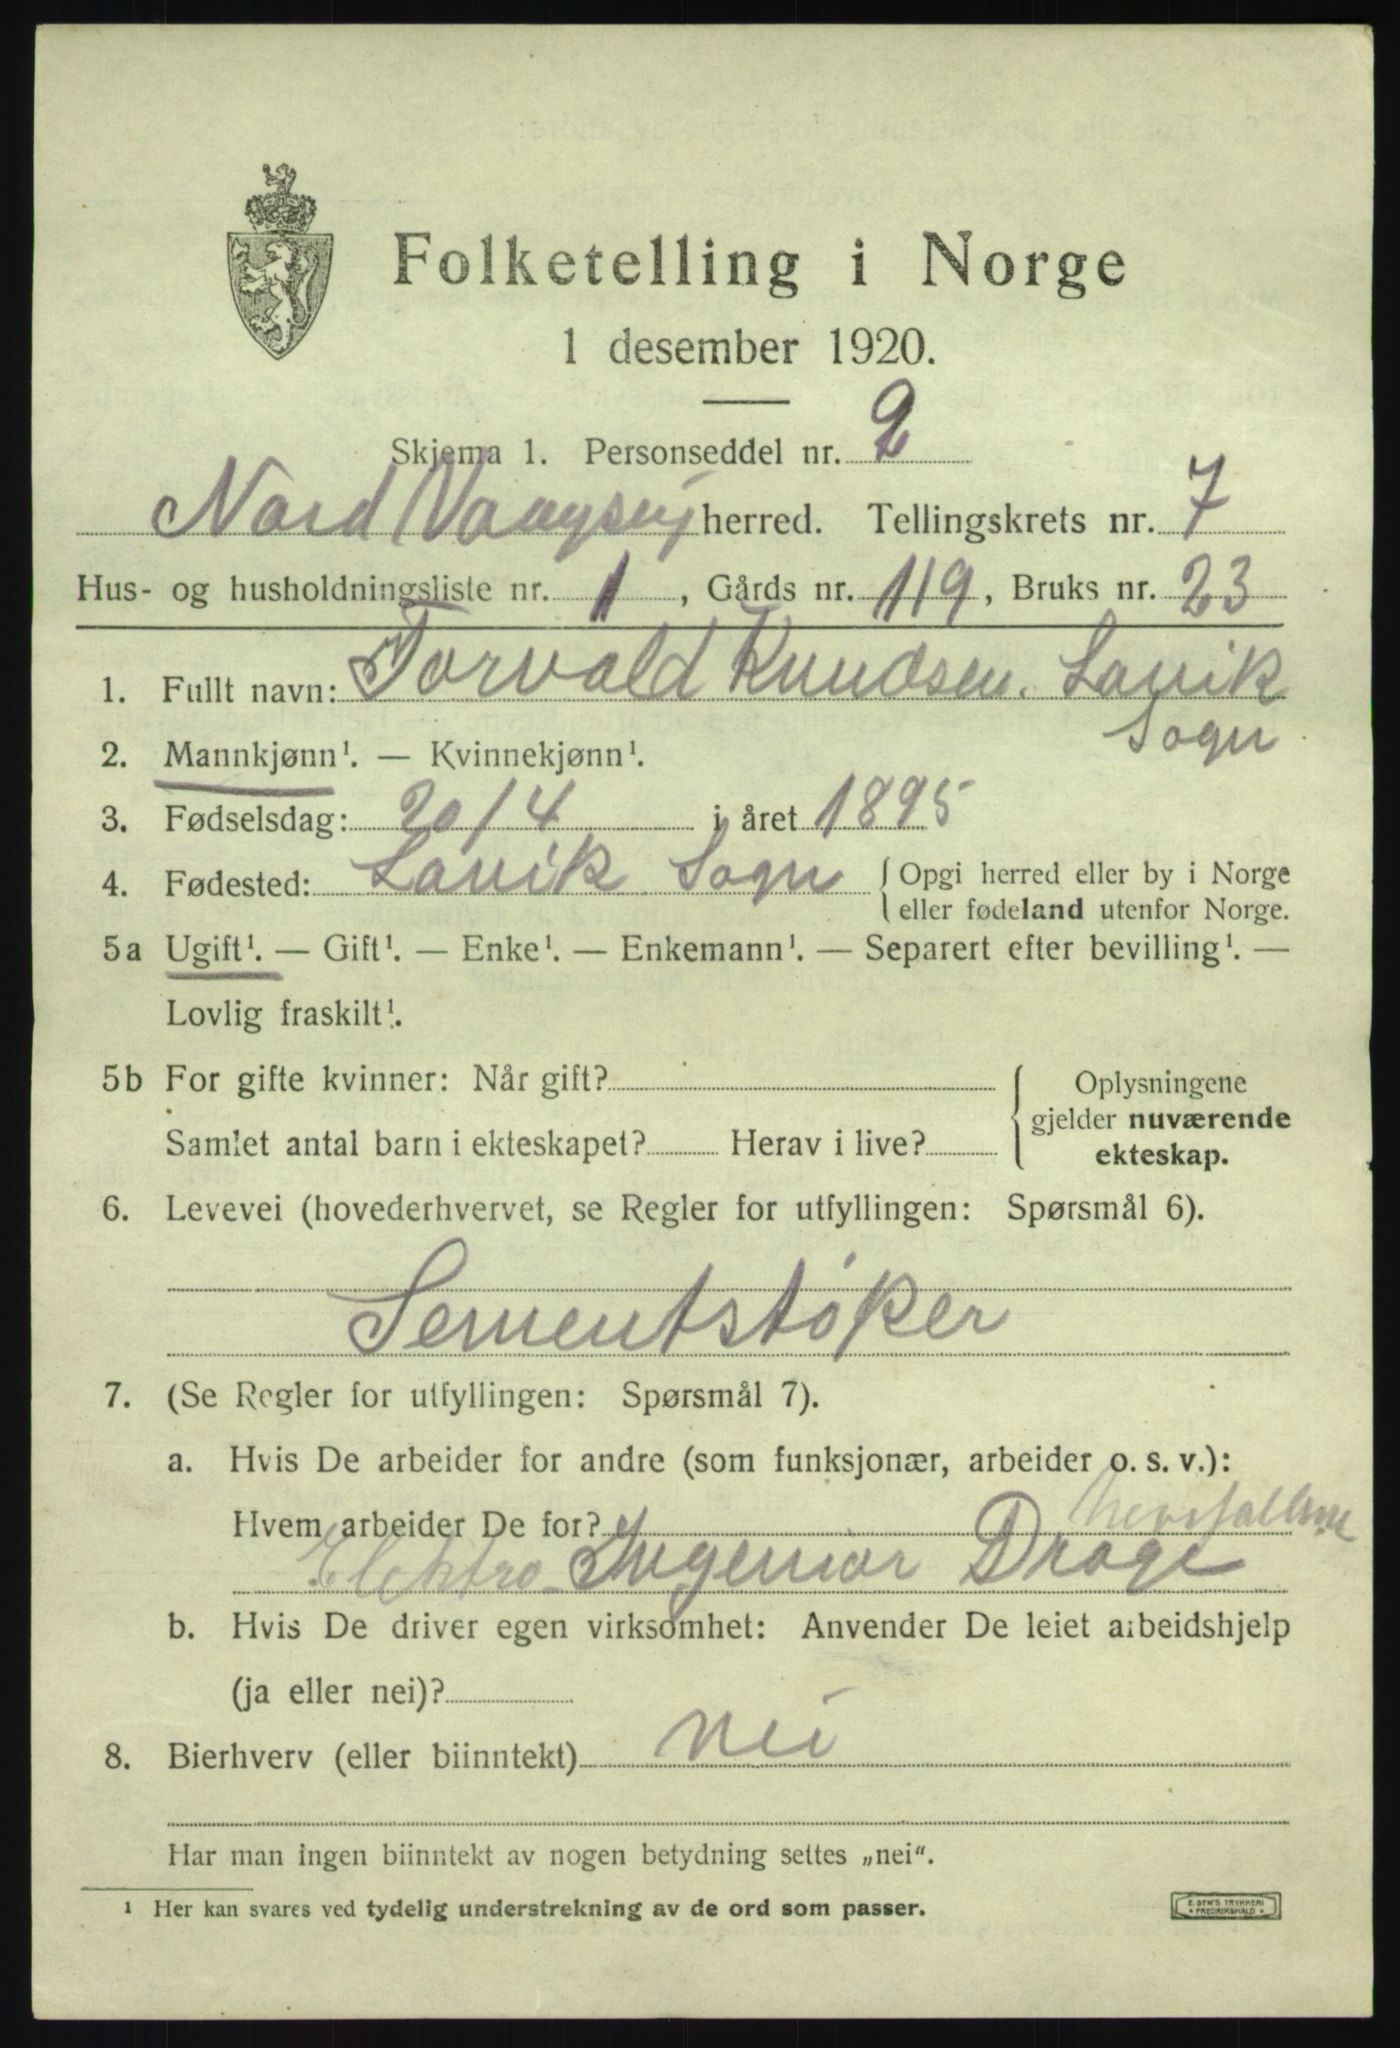 Folketelling i Norge
1 desember 1920.
Skjema 1. Personseddel nr. 2
Nord Vaagsøy herred. Tellingskrets nr. 7
Hus- og husholdningsliste nr. 1, Gårds nr. 119, Bruks nr. 23
1. Fullt navn: Torvald Knudsen. Lavik
Sogn
2. Mannkjønn¹. — Kvinnekjønn¹.
3. Fødselsdag: 20/4 i året 1895
4. Fødested: Lavik Sogn { Opgi herred eller by i Norge
eller fødeland utenfor Norge.
5a Ugift¹. — Gift¹. — Enke¹. — Enkemann¹. — Separert efter bevilling¹. —
Lovlig fraskilt¹.
5b For gifte kvinner: Når gift? { Oplysningene
gjelder nuværende
Samlet antal barn i ekteskapet? Herav i live? ekteskap.
6. Levevei (hovederhvervet, se Regler for utfyllingen: Spørsmål 6).
Sementstøper
7. (Se Regler for utfyllingen: Spørsmål 7).
a. Hvis De arbeider for andre (som funksjonær, arbeider o. s. v.):
Hvem arbeider De for?
Elektro Ingeniør Drage
b. Hvis De driver egen virksomhet: Anvender De leiet arbeidshjelp
(ja eller nei)?
8. Bierhverv (eller biinntekt) nei
Har man ingen biinntekt av nogen betydning settes „nei“.
¹ Her kan svares ved tydelig understrekning av de ord som passer.
E. SEM'S TRYKKERI
• FREDRIKSHALD •